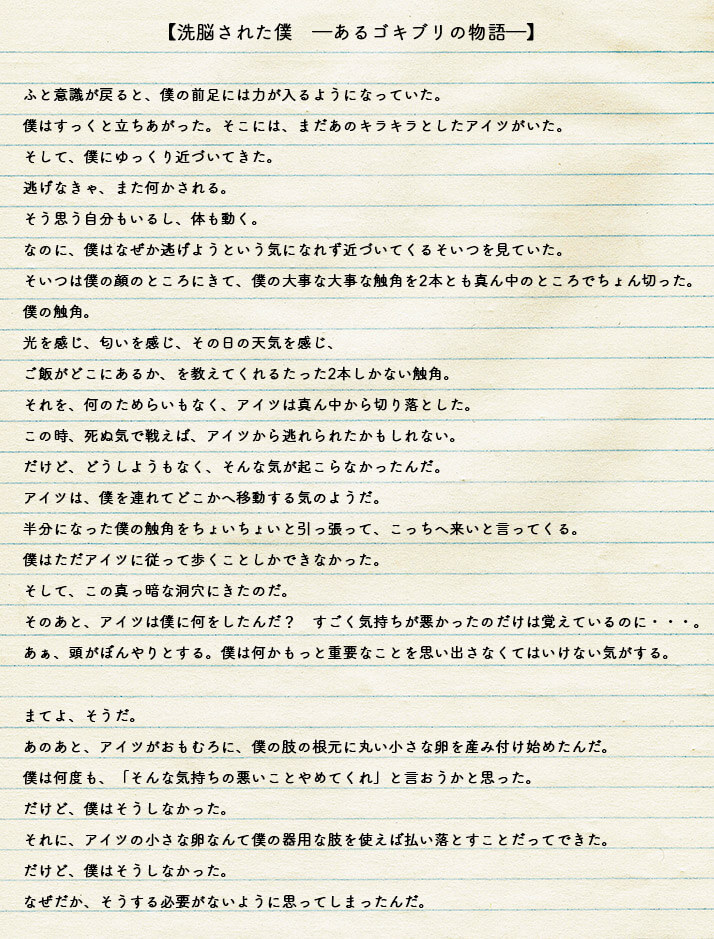 【洗脳された僕　―あるゴキブリの物語―】
ふと意識が戻ると、僕の前足には力が入るようになっていた。
僕はすっくと立ちあがった。そこには、まだあのキラキラとしたアイツがいた。
そして、僕にゆっくり近づいてきた。
逃げなきゃ、また何かされる。
そう思う自分もいるし、体も動く。
なのに、僕はなぜか逃げようという気になれず近づいてくるそいつを見ていた。
そいつは僕の顔のところにきて、僕の大事な大事な触角を2本とも真ん中のところでちょん切った。
僕の触角。
光を感じ、匂いを感じ、その日の天気を感じ、
ご飯がどこにあるか、を教えてくれるたった2本しかない触角。
それを、何のためらいもなく、アイツは真ん中から切り落とした。
この時、死ぬ気で戦えば、アイツから逃れられたかもしれない。
だけど、どうしようもなく、そんな気が起こらなかったんだ。
アイツは、僕を連れてどこかへ移動する気のようだ。
半分になった僕の触角をちょいちょいと引っ張って、こっちへ来いと言ってくる。
僕はただアイツに従って歩くことしかできなかった。
そして、この真っ暗な洞穴にきたのだ。
そのあと、アイツは僕に何をしたんだ？　すごく気持ちが悪かったのだけは覚えているのに・・・。
あぁ、頭がぼんやりとする。僕は何かもっと重要なことを思い出さなくてはいけない気がする。
まてよ、そうだ。
あのあと、アイツがおもむろに、僕の肢の根元に丸い小さな卵を産み付け始めたんだ。
僕は何度も、「そんな気持ちの悪いことやめてくれ」と言おうかと思った。
だけど、僕はそうしなかった。
それに、アイツの小さな卵なんて僕の器用な肢を使えば払い落とすことだってできた。
だけど、僕はそうしなかった。
なぜだか、そうする必要がないように思ってしまったんだ。